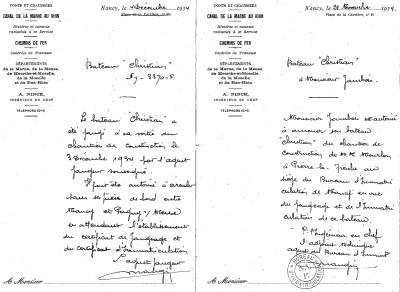 PONTS ET CHAUSSÉES
CANAL DE LA MARNE AU RHIN
Rivières et canaux
rattachés à ce Service
CHEMINS DE FER
Contrôle de Travaux
DÉPARTEMENTS
de la Marne, de la Meuse,
de Meurthe-et-Moselle,
de la Moselle
et du Bas-Rhin
INGÉNIEUR EN CHEF
TÉLÉPHONE
Nancy, le 4 décembre 1934
Place de la Carrière, nº
Bateau "Christian"
Ny - 8870-F
Le bateau "Christian" a
été jaugé à sa sortie du
chantier de construction le
3 Décembre 1934 par l'agent
jaugeur soussigné.
Il peut être autorisé à circuler
sans sa pièce de bord entre
Nancy et Pagny s/ Meuse
en attendant l'établissement
du certificat de jaugeage et
du certificat d'immatriculation
L'agent jaugeur
A Monsieur
PONTS ET CHAUSSÉES
CANAL DE LA MARNE AU RHIN
Rivières et canaux
rattachés à ce Service
CHEMINS DE FER
Contrôle de Travaux
DÉPARTEMENTS
de la Marne, de la Meuse,
de Meurthe-et-Moselle,
de la Moselle
et du Bas-Rhin
INGÉNIEUR EN CHEF
TÉLÉPHONE
Nancy, le 28 Novembre 1934
Place de la Carrière, nº
Bateau "Christian"
à Monsieur
Monsieur est autorisé
à amener son bateau
"Christian" du chantier de
construction de M.M.
à Pierre-la-Treiche au
siège du Bureau d'Immatri
culation de Nancy en vue
du jaugeage et de l'immatri
culation de ce bateau.
P. l'Ingénieur en chef
l'adjoint technique
agent du Bureau d'Immat
A Monsieur